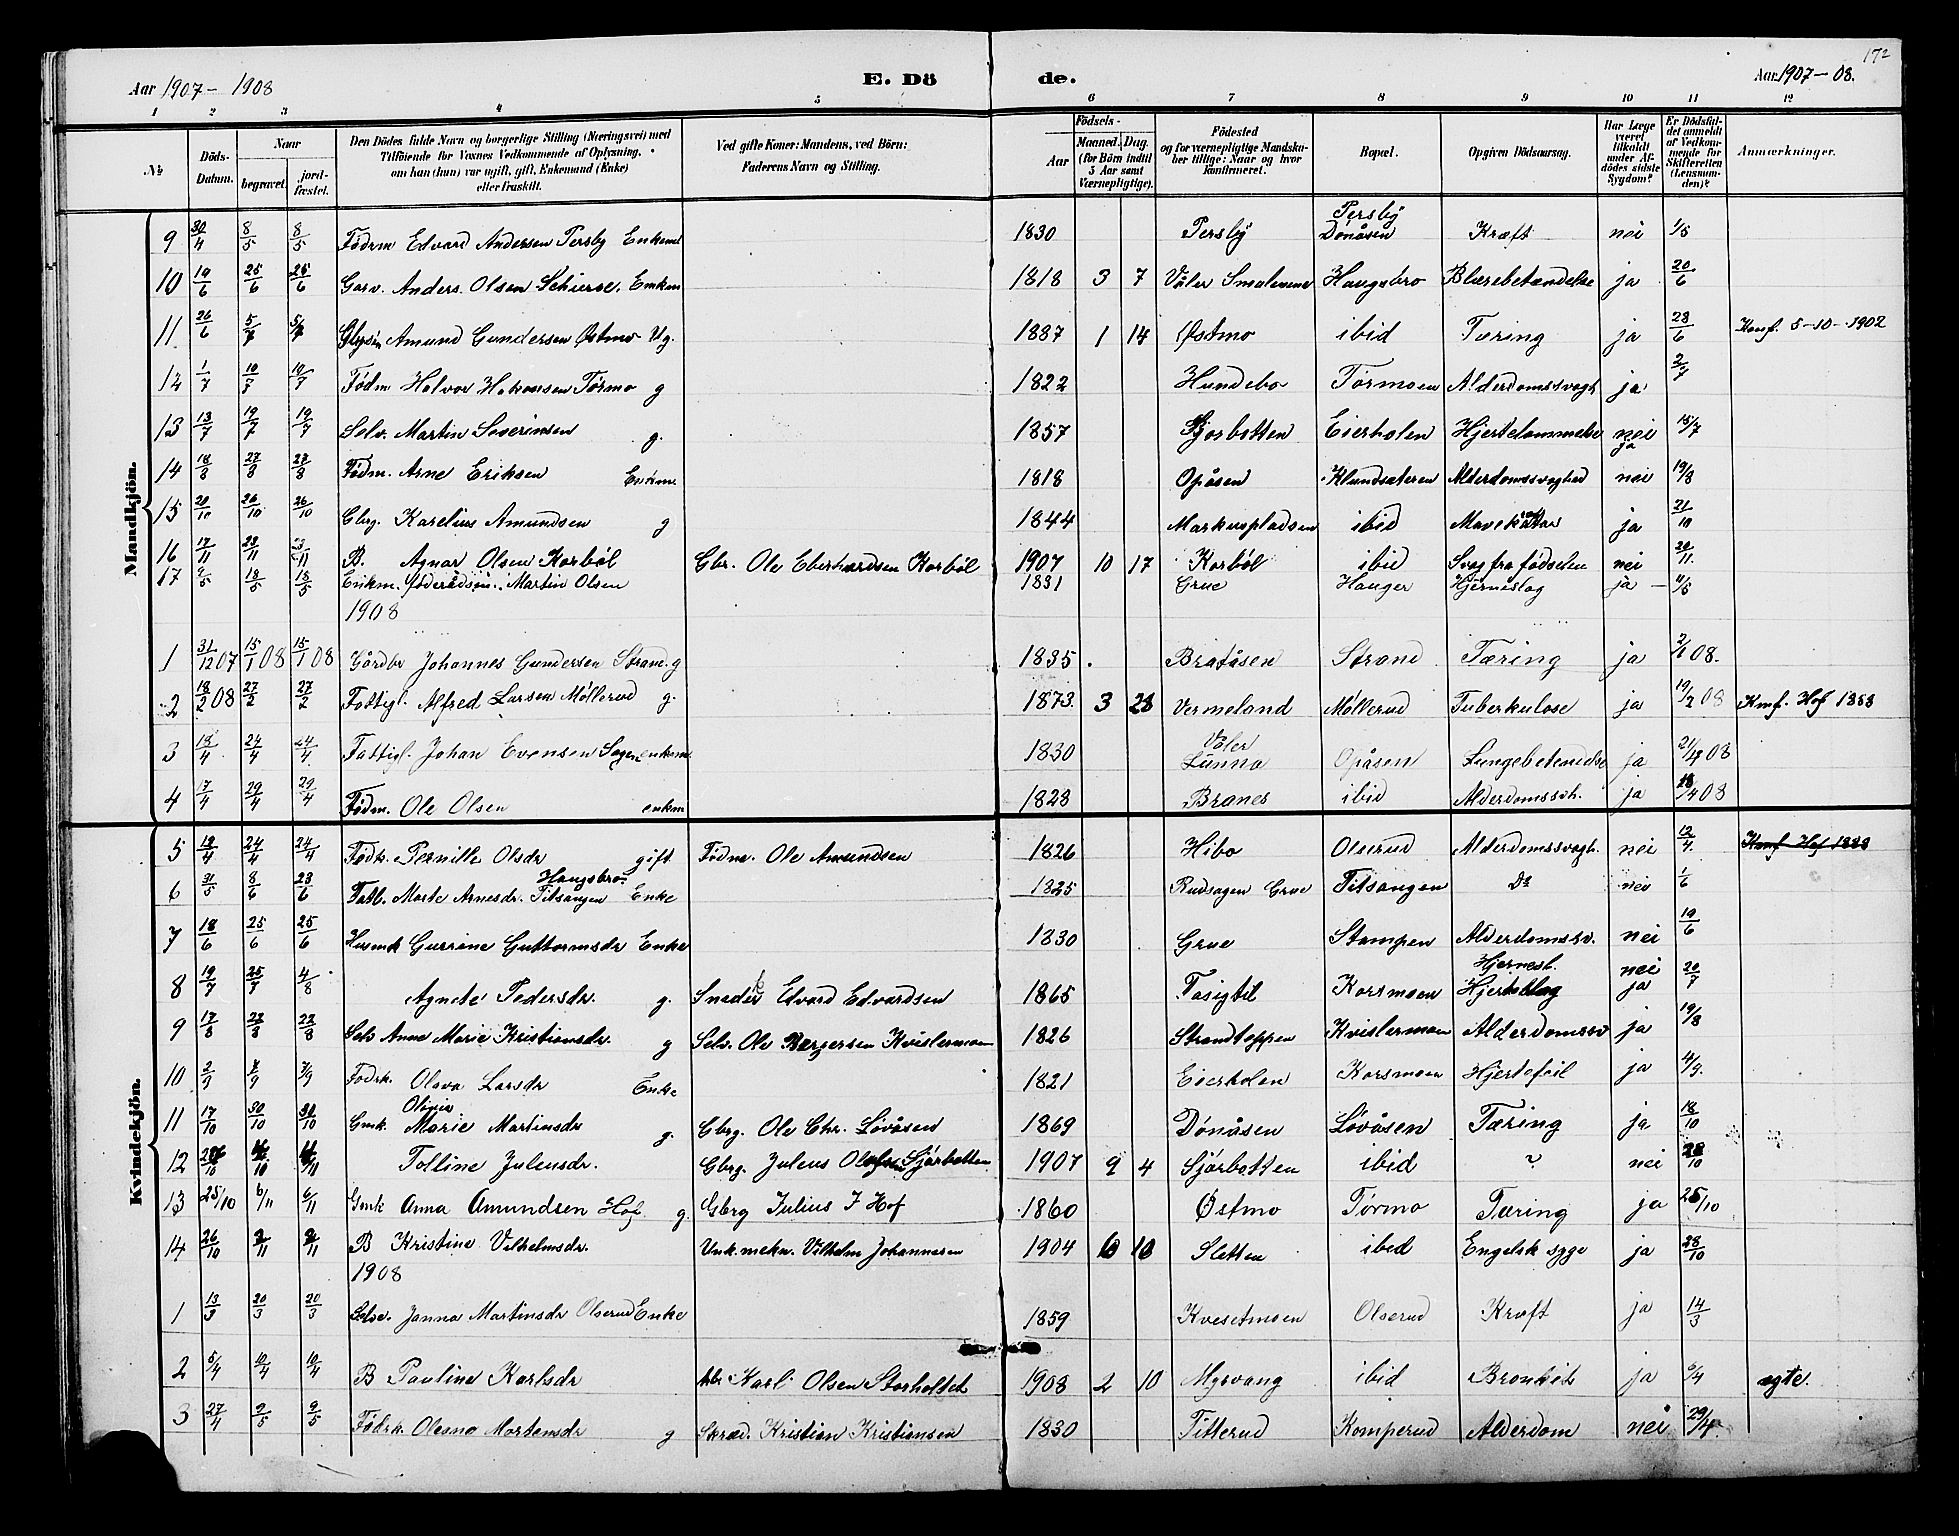 172
Aar 1907 - 1908 E. Dö de. Aar 1907 - 08.
1 2 3 4 5 6 7 8 9 10 11 12
№ Döds-Datum. Naar begravet. jordfæstet. Den Dödes fulde Navn og borgerlige Stilling (Næringsvei) med Tilföiende for Voxnes Vedkommende af Oplysning, om han (hun) var ugift, gift, Enkemand (Enke) eller fraskilt. Ved gifte Koner: Mandens, ved Börn: Faderens Navn og Stilling. Födsels- Aar Maaned. Dag. (for Börn indtil 5 Aar samt Værnepligtige). Födested og for værnepligtige Mandskaber tillige: Naar og hvor konfirmeret. Bopæl. Opgiven Dödsaarsag. Har Læge været tilkaldt under Afdödes sidste Sygdom? Er Dödsfaldet anmeldt af Vedkommende for Skifteretten (Lensmanden)? Anmærkninger.
Mandkjön.
9 30/4 8/5 8/5 Fødrm Edvard Andersen Persby Enkem 1830 Persby Persby Dönåsen Kræft nei 1/5
10 19/6 25/6 25/6 Garv. Anders Olsen Enkm 1818 3 7 Våler Smalenene Haugsbro Blærebetændelse ja 20/6
11 26/6 5/7 5/7 Amund Gundersen Østmo Ug. 1887 1 14 Østmo ibid Tæring ja 28/6 Konf. 5-10-1902
12 1/7 10/7 10/7 Fødm Halvor Hakonsen Tørmo g 1822 Hundebo Tørmoen Alderdomssvagh ja 2/7
13 13/7 19/7 19/7 Selv. Martin Severinsen g. 1857 Sjorbotten Eierholen Hjertelammelse nei ja 15/7
14 18/8 27/8 27/8 Fødm. Arne Eriksen Enkm. 1818 Opåsen Klundsæteren Alderdomssvaghed nei 19/8
15 20/10 26/10 26/10 Gbrg. Karelius Amundsen g 1844 Markuspladsen ibid ja 21/10
16 17/11 23/11 23/11 B. Agnar Olsen Korbøl Gbr. Ole Eberhardsen Korbøl 1907 10 17 Korbøl ibid Svag fra fødselen nei 20/11.
17 9/5 18/5 18/5 Enkm. Martin Olsen 1831 Grue Hauger Hjerneslag ja - 11/5
1908
1 31/12 07 15/1 08 15/1 08 Gårdbr Johannes Gundersen Strand. g 1835. Bratåsen Strand Tæring ja 2/1 08.
2 18/2 08 27/2 27/2 Fattigl. Alfred Larsen Møllerud g. 1873. 3 28 Vermeland Møllerud Tuberkulose ja 19/2 08 Konf. Hof 1888
3 18/4 24/4 24/4 Fattigl. Johan Evensen Sagen enkem. 1830 Våler Lunna Opåsen Lungebetendelse ja 21/4 08
4 17/4 29/4 29/4 Fødm. Ole Olsen enkm 1828 Branes ibid Alderdomssvh. ja 18/4 08
Kvindekjön.
5 18/4 24/4 24/4 Fødk. Pernille Olsdr gift Fødm. Ole Amundsen 1826 Hibo Olserud Alderdomssvagh. nei 12/4. Konf Hof 1888
6 31/5 8/6 23/6 Fatl. Marte Arnesdr. Haugsbro Titsangen Enke 1825 Rudsagen Grue Titsangen Do nei 1/6
7 18/6 25/6 25/6 Husmk Gurine Guttormsdr Enke 1830 Grue Stampen Alderdomssv. nei 19/6
8 19/7 25/7 4/8 Agnete Pedersdr. g. Snedker Edvard Edvardsen 1865 Fasigtil Korsmoen Hjernesl. nei ja 20/7
9 17/8 23/8 23/8 Selv Anne Marie Kristiansdr. g Selv. Ole Børgersen Kvislermoen 1826 Strandtoppen Kvislermoen Alderdomssv ja 19/8
10 2/9 7/9 7/9 Fødrk. Olava Larsdr Enke 1821 Eierholen Korsmoen Hjertefeil ja 4/9.
11 17/10 30/10 30/10 Gmk. Olivia Marie Martinsdr g. Gbrg. Ole Chr. Løvåsen 1869 Dönåsen Løvåsen Tæring ja 18/10
12 Tolline Juliusdr. Gbrg. Julius Sjørbotten 1907 9 4 Sjörbotten ibid ? nei 28/10
13 25/10 6/11 6/11 Gmk Anna Amundsen Hof. g. Gbrg Julius J Hof 1860 Østmo Tørmo Tæring ja 25/10
14 26/10 2/11 2/11 B Kristine Vilhelmsdr. Unk.mekn. Vilhelm Johannesen 1904 10 10 Sletten ibid Engelsk syge ja 28/10
1908
1 13/3 20/3 20/3 Selve. Janna Martinsdr Olserud Enke 1859 Kvesetmoen Olserud Kræft ja 14/3
2 5/4 10/4 10/4 B Pauline Karlsdr Karl Olsen Storholtet 1908 2 10 Myrvang ibid Bronkit ja 6/4 ægte.
3 27/4 9/5 9/5 Fødrk. Olesna Mortensdr g Skræd. Kristian Kristiansen 1830 Titterud Komperud Alderdom nei 29/4.